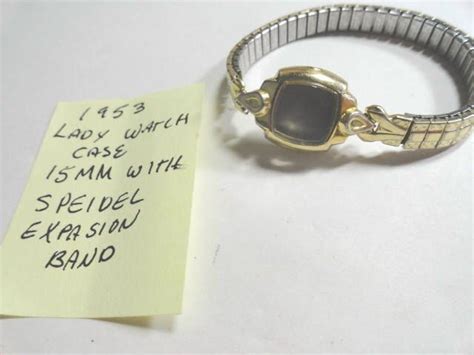 1953
LADY WATCH
CASE
15MM WITH
SPEIDEL
EXPASION
BAND